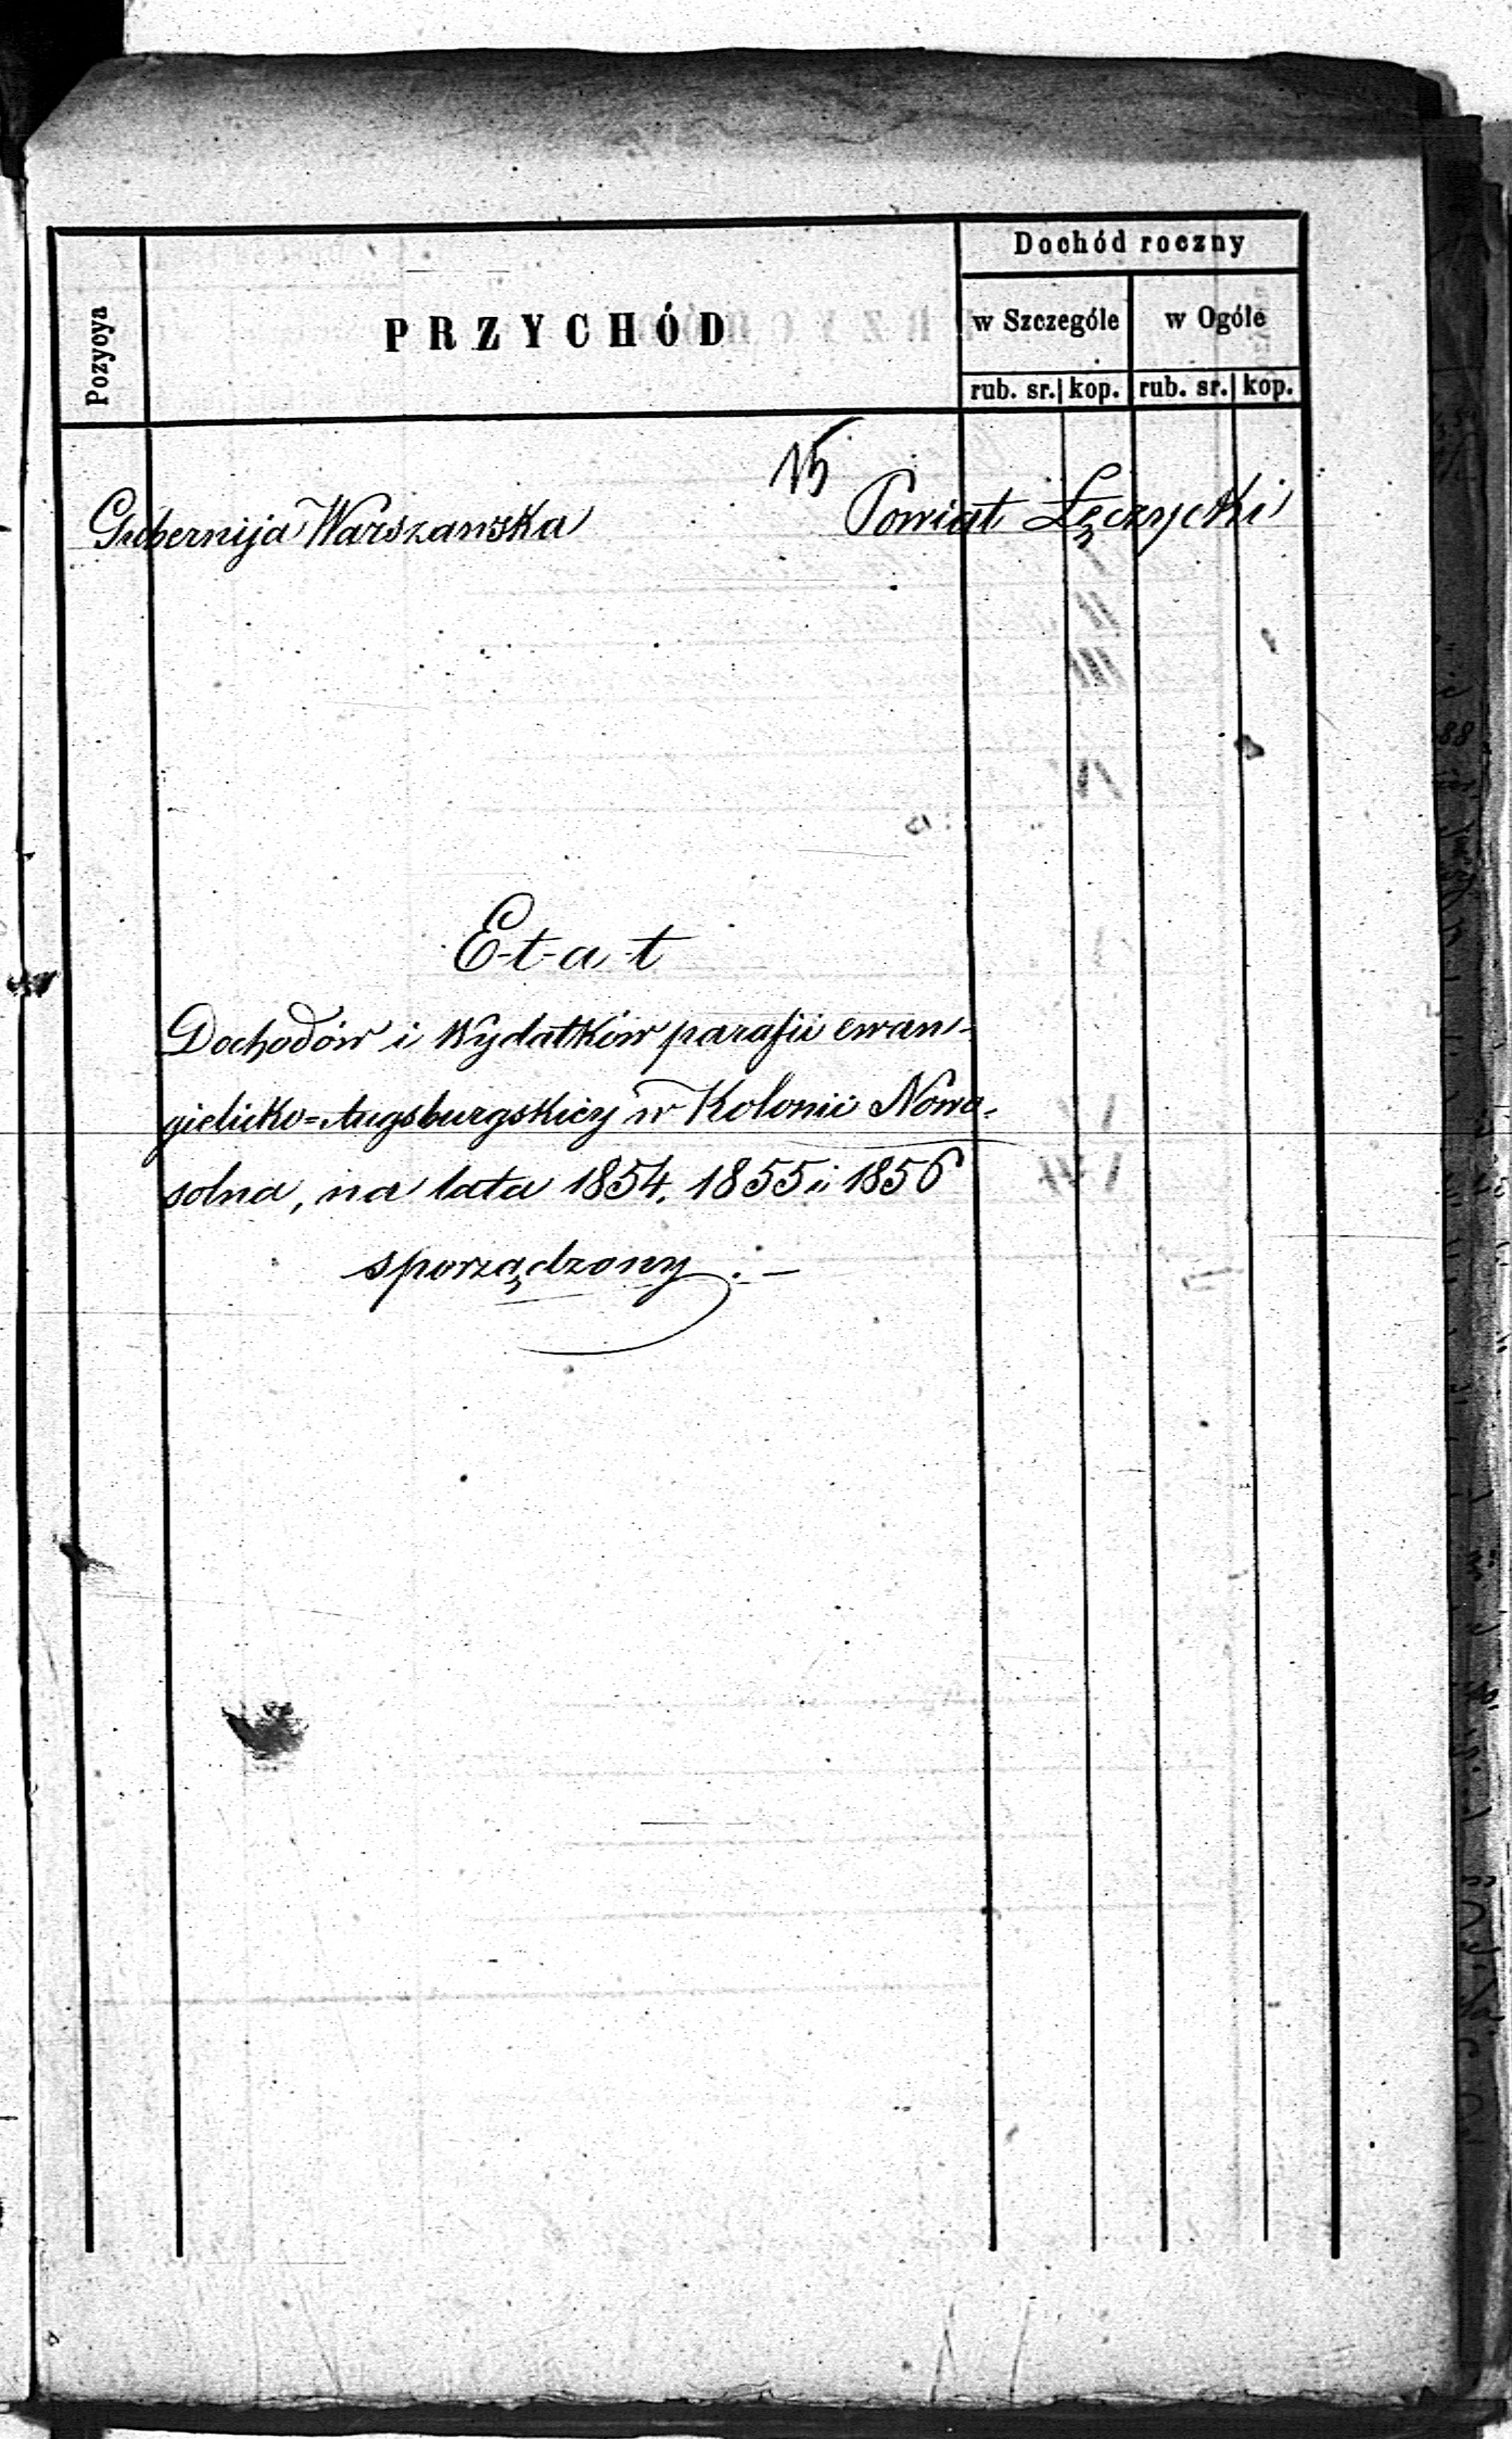 Dochód roczny
Pozycya
PRZYCHÓD
w Szczególe
w Ogóle
rub. sr. kop. rub. sr. kop.
15
Gubernija Warszawska Powiat Łęczycki
E-t-a-t
Dochodów i Wydatków parafii ewan-
gielicko=Augsburgskiey w Kolonii Nowo-
solna, na lata 1854, 1855 i 1856
sporządzony.-